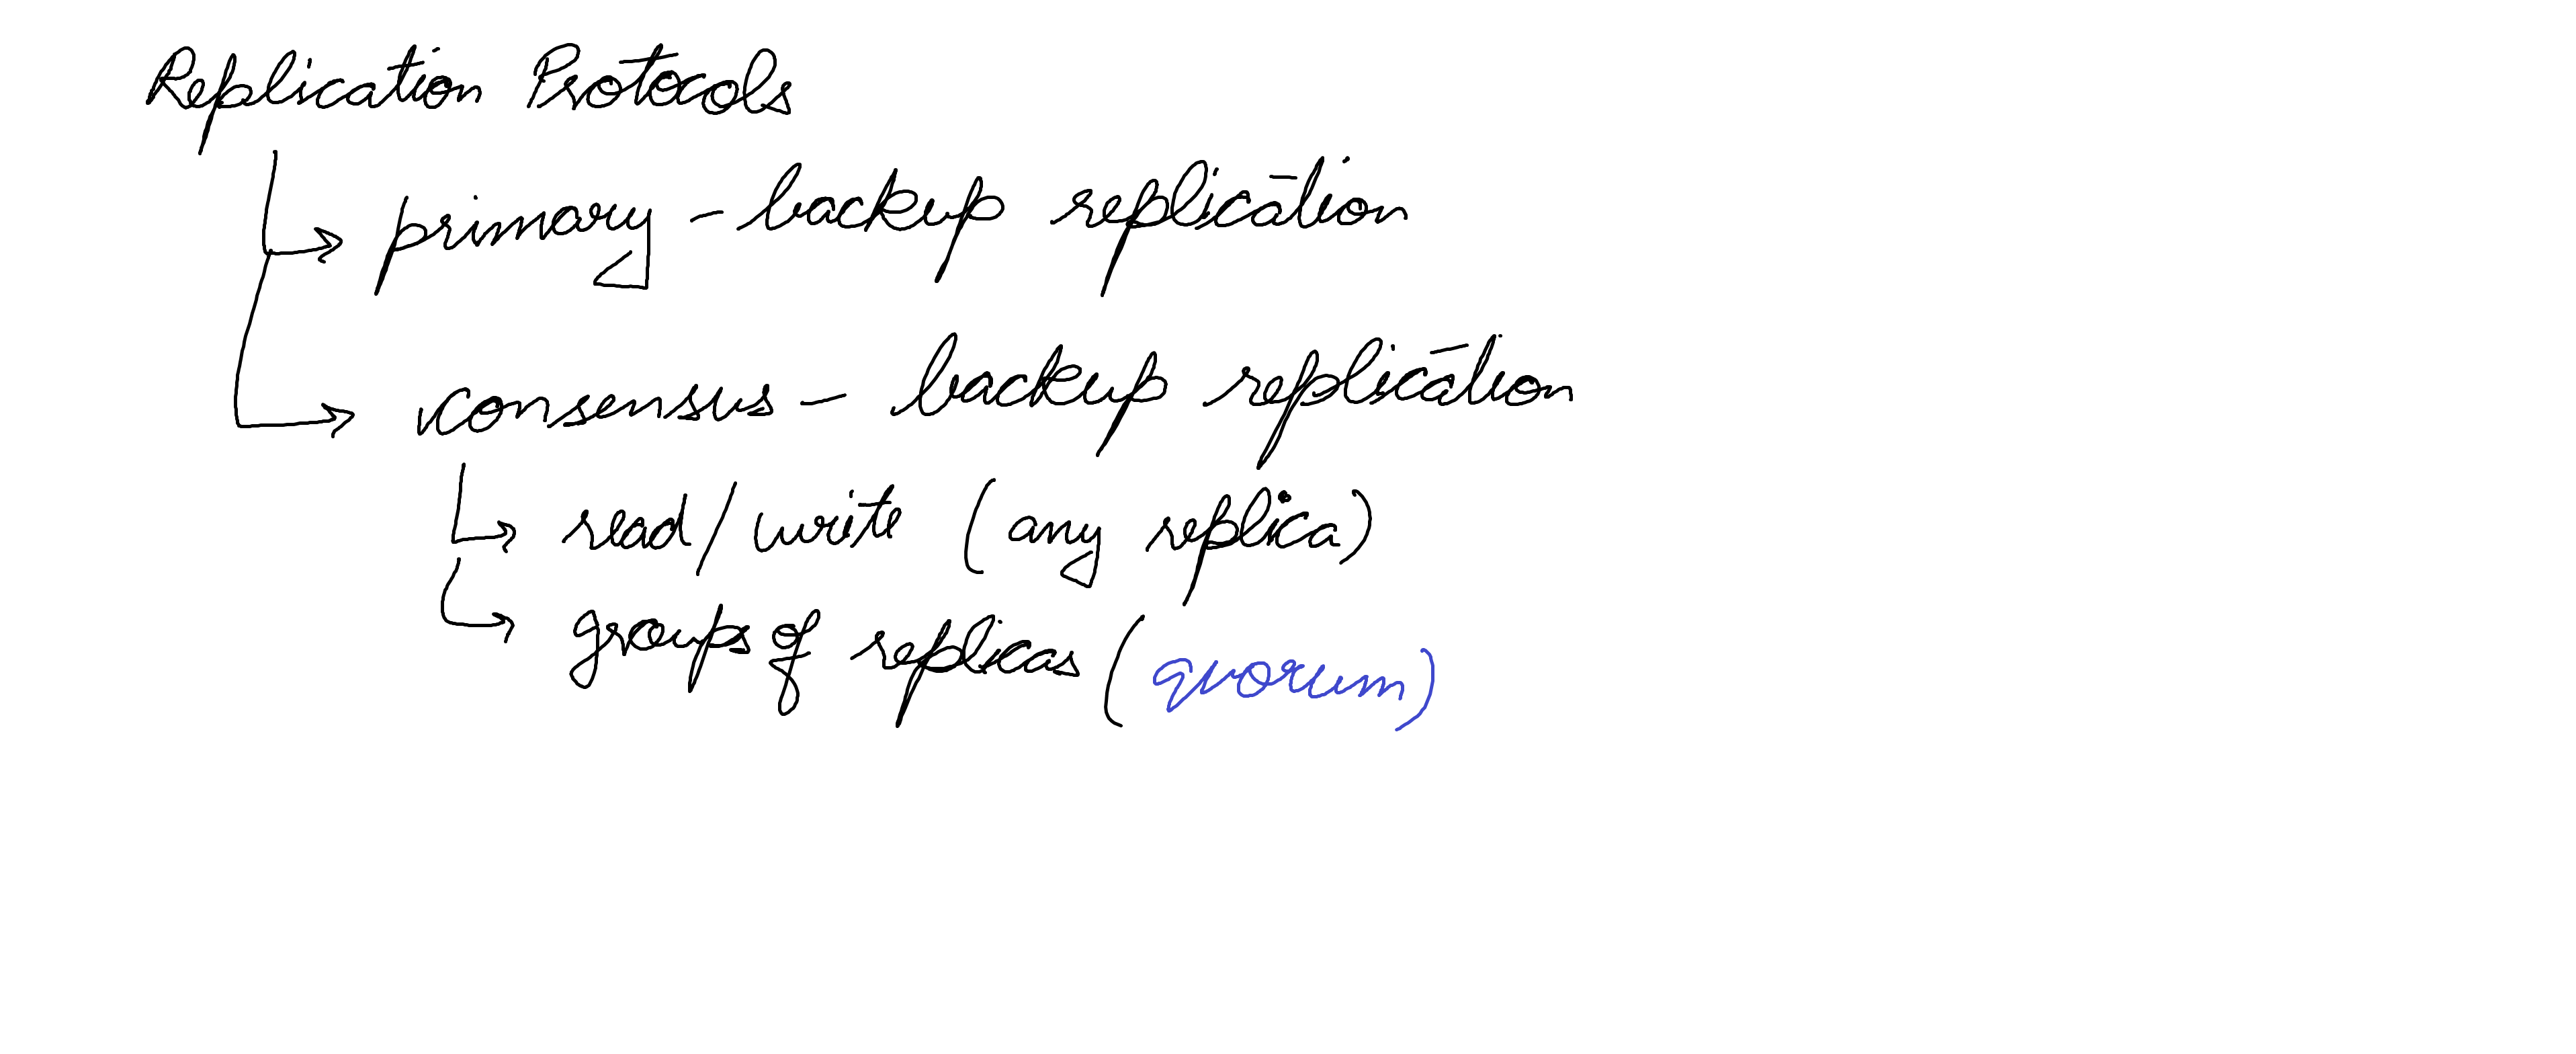 Replication Protocols
primary - backup replication
consensus - backup replication
read/write (any replica)
groups of replicas (quorum)